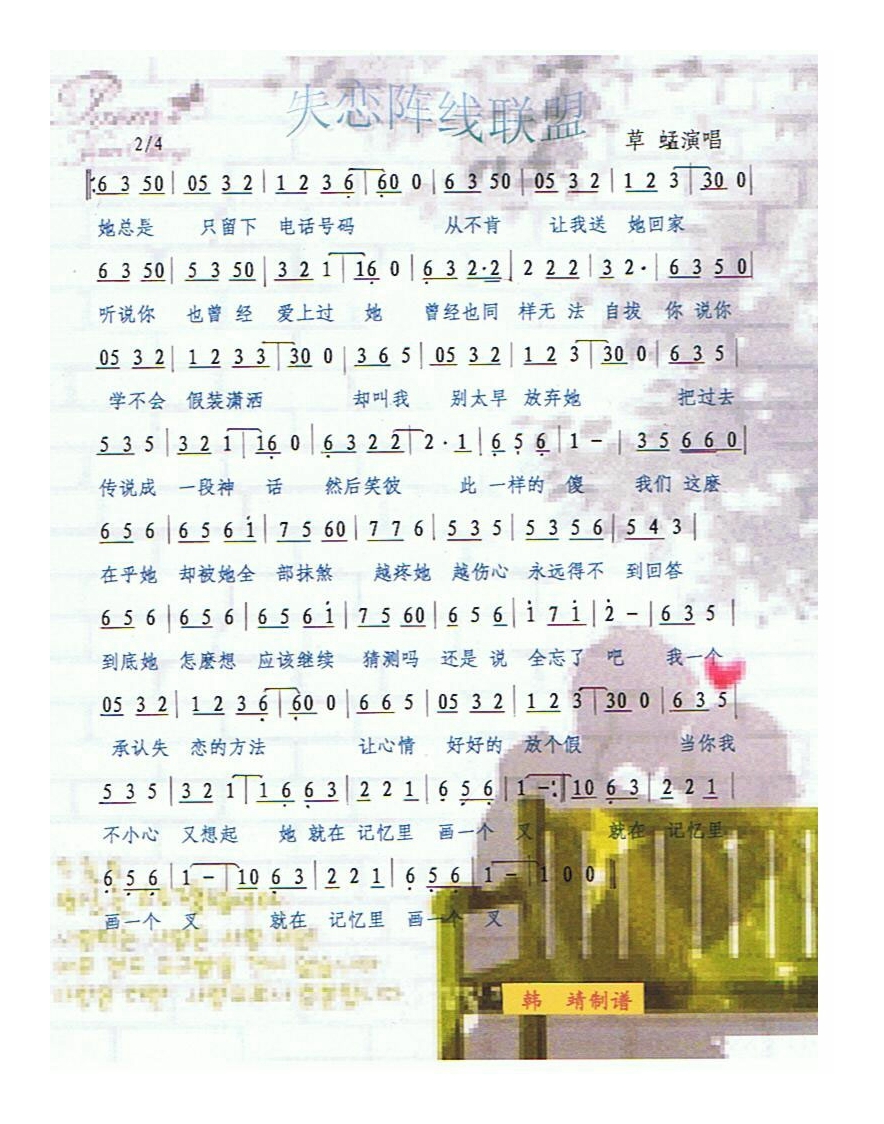 失恋阵线联盟
2/4
草 蜢演唱
6 3 50 | 05 3 2 | 1 2 3 6 | 60 0 | 6 3 50 | 05 3 2 | 1 2 3 | 30 0 |
她总是 只留下 电话号码 从不肯 让我送 她回家
6 3 50 | 5 3 50 | 3 2 1 | 16 0 | 6 3 2·2 | 2 2 2 | 3 2· | 6 3 5 0 |
听说你 也曾 经 爱上过 她 曾经也同 样无 法 自拔 你 说你
05 3 2 | 1 2 3 3 | 30 0 | 3 6 5 | 05 3 2 | 1 2 3 | 30 0 | 6 3 5 |
学不会 假装潇洒 却叫我 别太早 放弃她 把过去
5 3 5 | 3 2 1 | 16 0 | 6 3 2 2 | 2 · 1 | 6 5 6 | 1 – | 3 5 6 6 0 |
传说成 一段神 话 然后笑彼 此 一样的 傻 我们 这麽
6 5 6 | 6 5 6 i | 7 5 60 | 7 7 6 | 5 3 5 | 5 3 5 6 | 5 4 3 |
在乎她 却被她全 部抹煞 越疼她 越伤心 永远得不 到回答
6 5 6 | 6 5 6 | 6 5 6 i | 7 5 60 | 6 5 6 | i 7 i | 2 – | 6 3 5 |
到底她 怎麽想 应该继续 猜测吗 还是 说 全忘了 吧 我一个
05 3 2 | 1 2 3 6 | 60 0 | 6 6 5 | 05 3 2 | 1 2 3 | 30 0 | 6 3 5 |
承认失 恋的方法 让心情 好好的 放个假 当你我
5 3 5 | 3 2 1 | 1 6 6 3 | 2 2 1 | 6 5 6 | 1 –:‖ 10 6 3 | 2 2 1 |
不小心 又想起 她 就在 记忆里 画一个 叉 就在 记忆里
6 5 6 | 1 – | 10 6 3 | 2 2 1 | 6 5 6 | 1 – | 1 0 0 ‖
画一个 叉 就在 记忆里 画一个 叉
韩 靖制谱